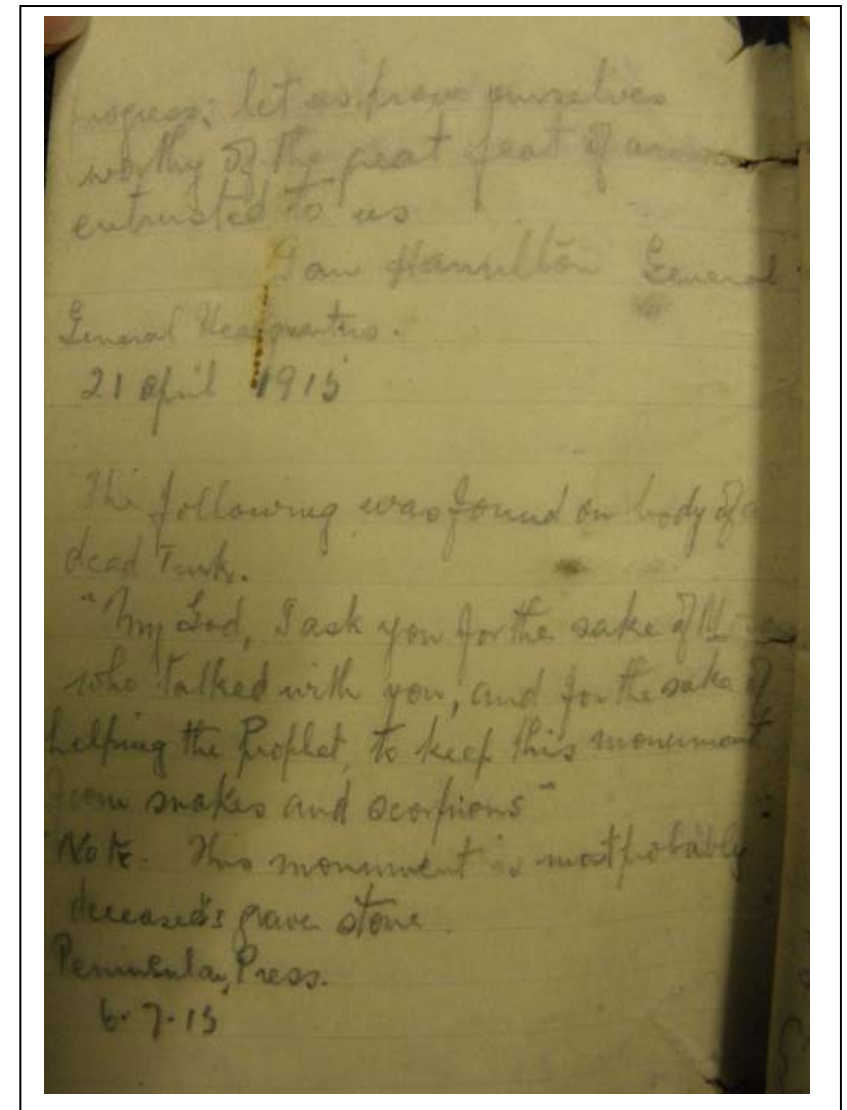 progress; let us prove ourselves
worthy of the great feat of arms
entrusted to us
Ian Hamilton General
General Headquarters.
21 April 1915
The following was found on body of a
dead Turk.
"My God, I ask you for the sake of
who talked with you, and for the sake of
helping the Prophet, to keep this monument
from snakes and scorpions"
Note. This monument is most probably
deceased's grave stone.
Peninsular Press.
6.7.15